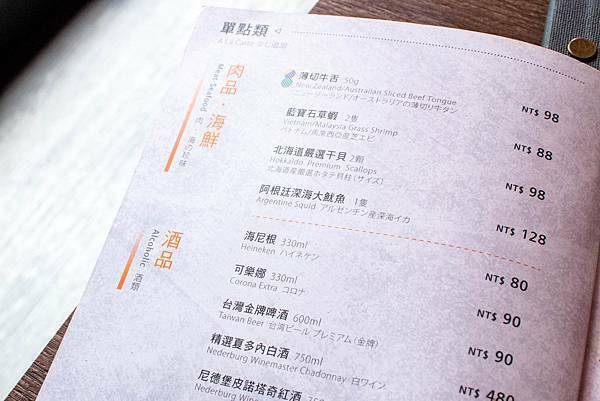 單點類
A La Carte 少し追加
肉品・海鮮
Meat Seafood 肉 海の珍味
薄切牛舌 50g NT$ 98
NewZealand/Australian Sliced Beef Tongue
ニュージーランド/オーストラリアの薄切り牛タン
藍寶石草蝦 2隻 NT$ 88
Vietnam/Malaysia Grass Shrimp
ベトナム/馬来西亞産芝エビ
北海道嚴選干貝 2顆 NT$ 98
Hokkaido Premium Scallops
北海道産厳選ホタテ貝柱(サイズ)
阿根廷深海大魷魚 1隻 NT$ 128
Argentine Squid アルゼンチン産深海イカ
酒品
Alcoholic 酒類
海尼根 330ml NT$ 80
Heineken ハイネケン
可樂娜 330ml NT$ 90
Corona Extra コロナ
台灣金牌啤酒 600ml NT$ 90
Taiwan Beer 台湾ビール プレミアム(金牌)
精選夏多內白酒 750ml NT$ 480
Nederburg Winemaster Chadonnay 白ワイン
尼德堡皮諾塔奇紅酒
Nederburg Winemaster